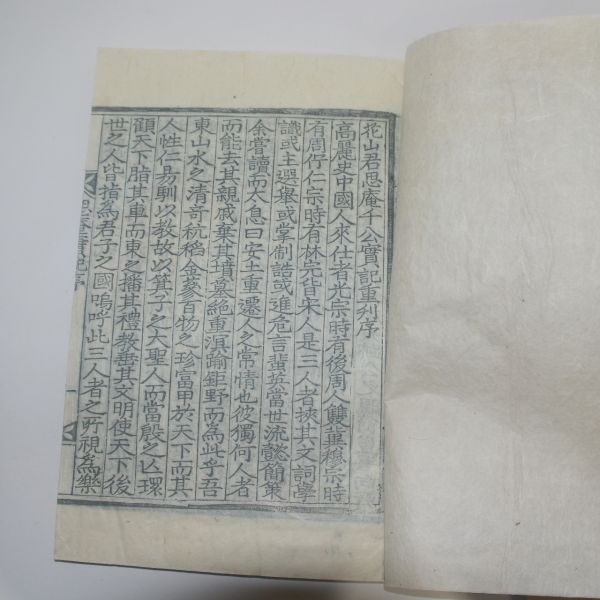 花山君思庵千公實記重刊序
高麗史中國人來仕者光宗時有後周人雙冀穆宗時
有周佇仁宗時有林完皆宋人是三人者挾其文詞學
識或主選舉或掌制誥或進危言蜚英當世流懿簡策
余嘗讀而太息曰安土重遷人之常情也彼獨何人者
而能去其親戚棄其墳墓絶重溟踰鉅野而爲此乎吾
東山水之淸奇秔稻金蔘百物之珍富甲於天下而其
人性仁易馴以教故以箕子之大聖人而當殷之亡環
顧天下脂其車而東之播其禮教垂其文明使天下後
世之人皆指爲君子之國嗚呼此三人者之所視爲樂
思庵實記序
一